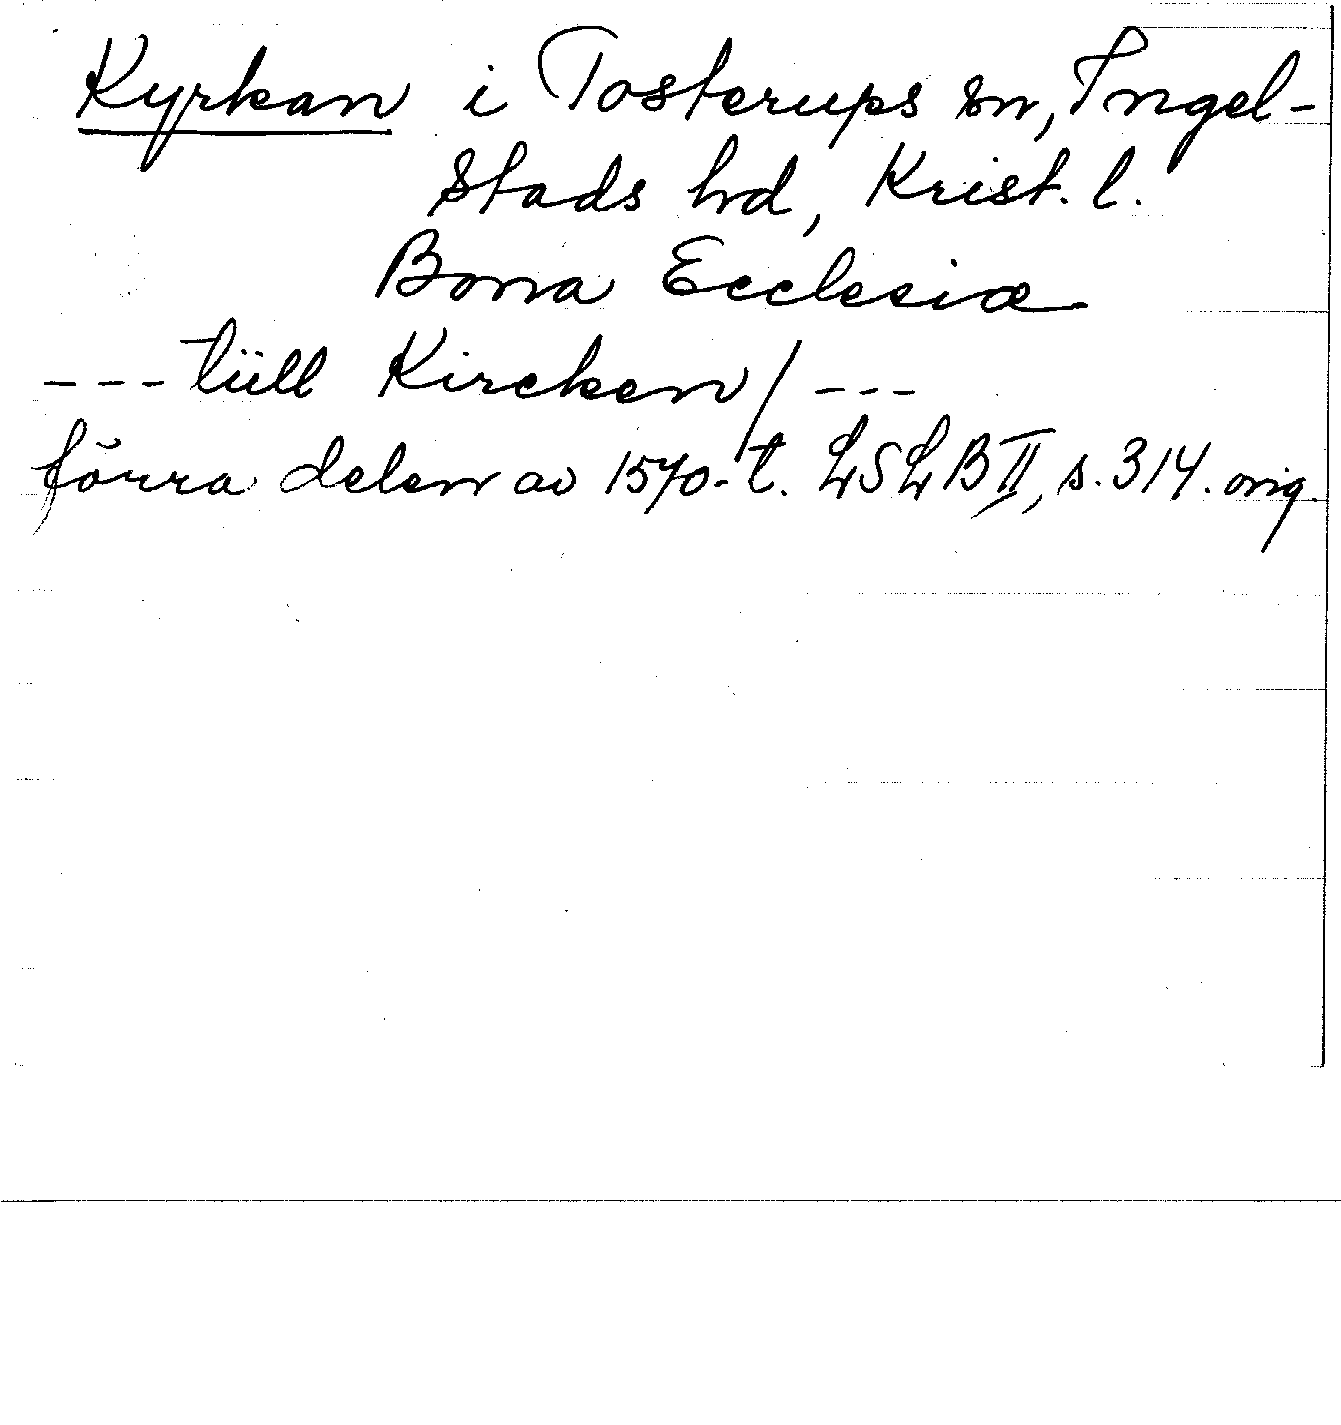 Kyrkan i Tosterups sn, Ingel-
stads hd, Krist. l.
Bona Ecclesiæ
--- tüll Kircken / ---
förra delen av 1570-t. LSLB II, s. 314. orig.